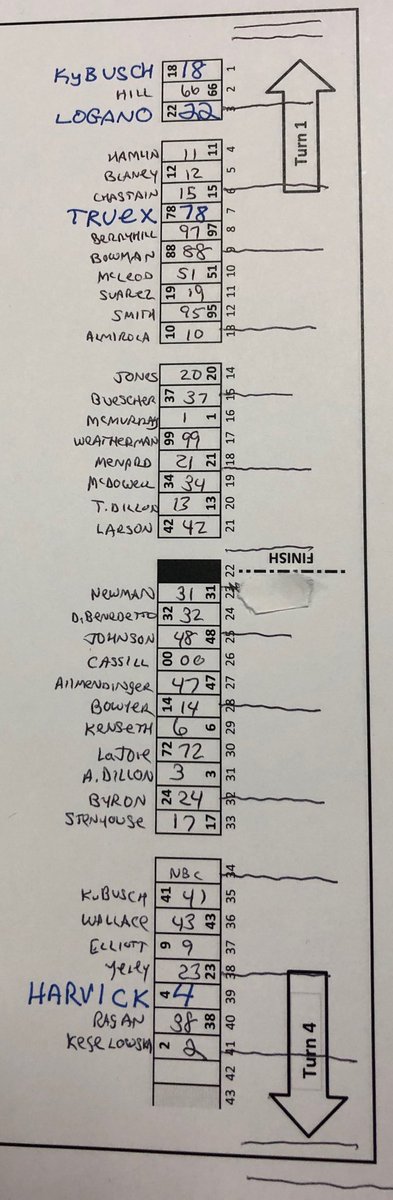 KyBUSCH 18 18 1
HILL 66 66 2
LOGANO 22 22 3
Turn 1
HAMLIN 11 11 4
BLANEY 12 12 5
CHASTAIN 15 15 6
TRUEX 78 78 7
BERRYHILL 97 97 8
BOWMAN 88 88 9
McLEOD 51 51 10
SUAREZ 19 19 11
SMITH 95 95 12
ALMIROLA 10 10 13
JONES 20 20 14
BUESCHER 37 37 15
McMURRAY 1 1 16
WEATHERMAN 99 99 17
MENARD 21 21 18
McDOWELL 34 34 19
T. DILLON 13 13 20
LARSON 42 42 21
22
FINISH
NEWMAN 31 31 23
DiBENEDETTO 32 32 24
JOHNSON 48 48 25
CASSILL 00 00 26
Allmendinger 47 47 27
BOWYER 14 14 28
KENSETH 6 6 29
LaJOIE 72 72 30
A. DILLON 3 3 31
BYRON 24 24 32
STENHOUSE 17 17 33
NBC 34
KuBUSCH 41 41 35
WALLACE 43 43 36
ELLIOTT 9 9 37
YELEY 23 23 38
HARVICK 4 4 39
RAGAN 38 38 40
KESELOWSKI 2 2 41
42
43
Turn 4